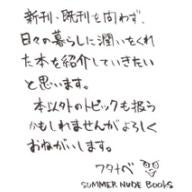 新刊・既刊を問わず、
日々の暮らしに潤いをくれ
た本を紹介していきたい
と思います。
本以外のトピックも扱う
かもしれませんがよろしく
おねがいします。
ワタナベ
SUMMER NUDE BOOKS